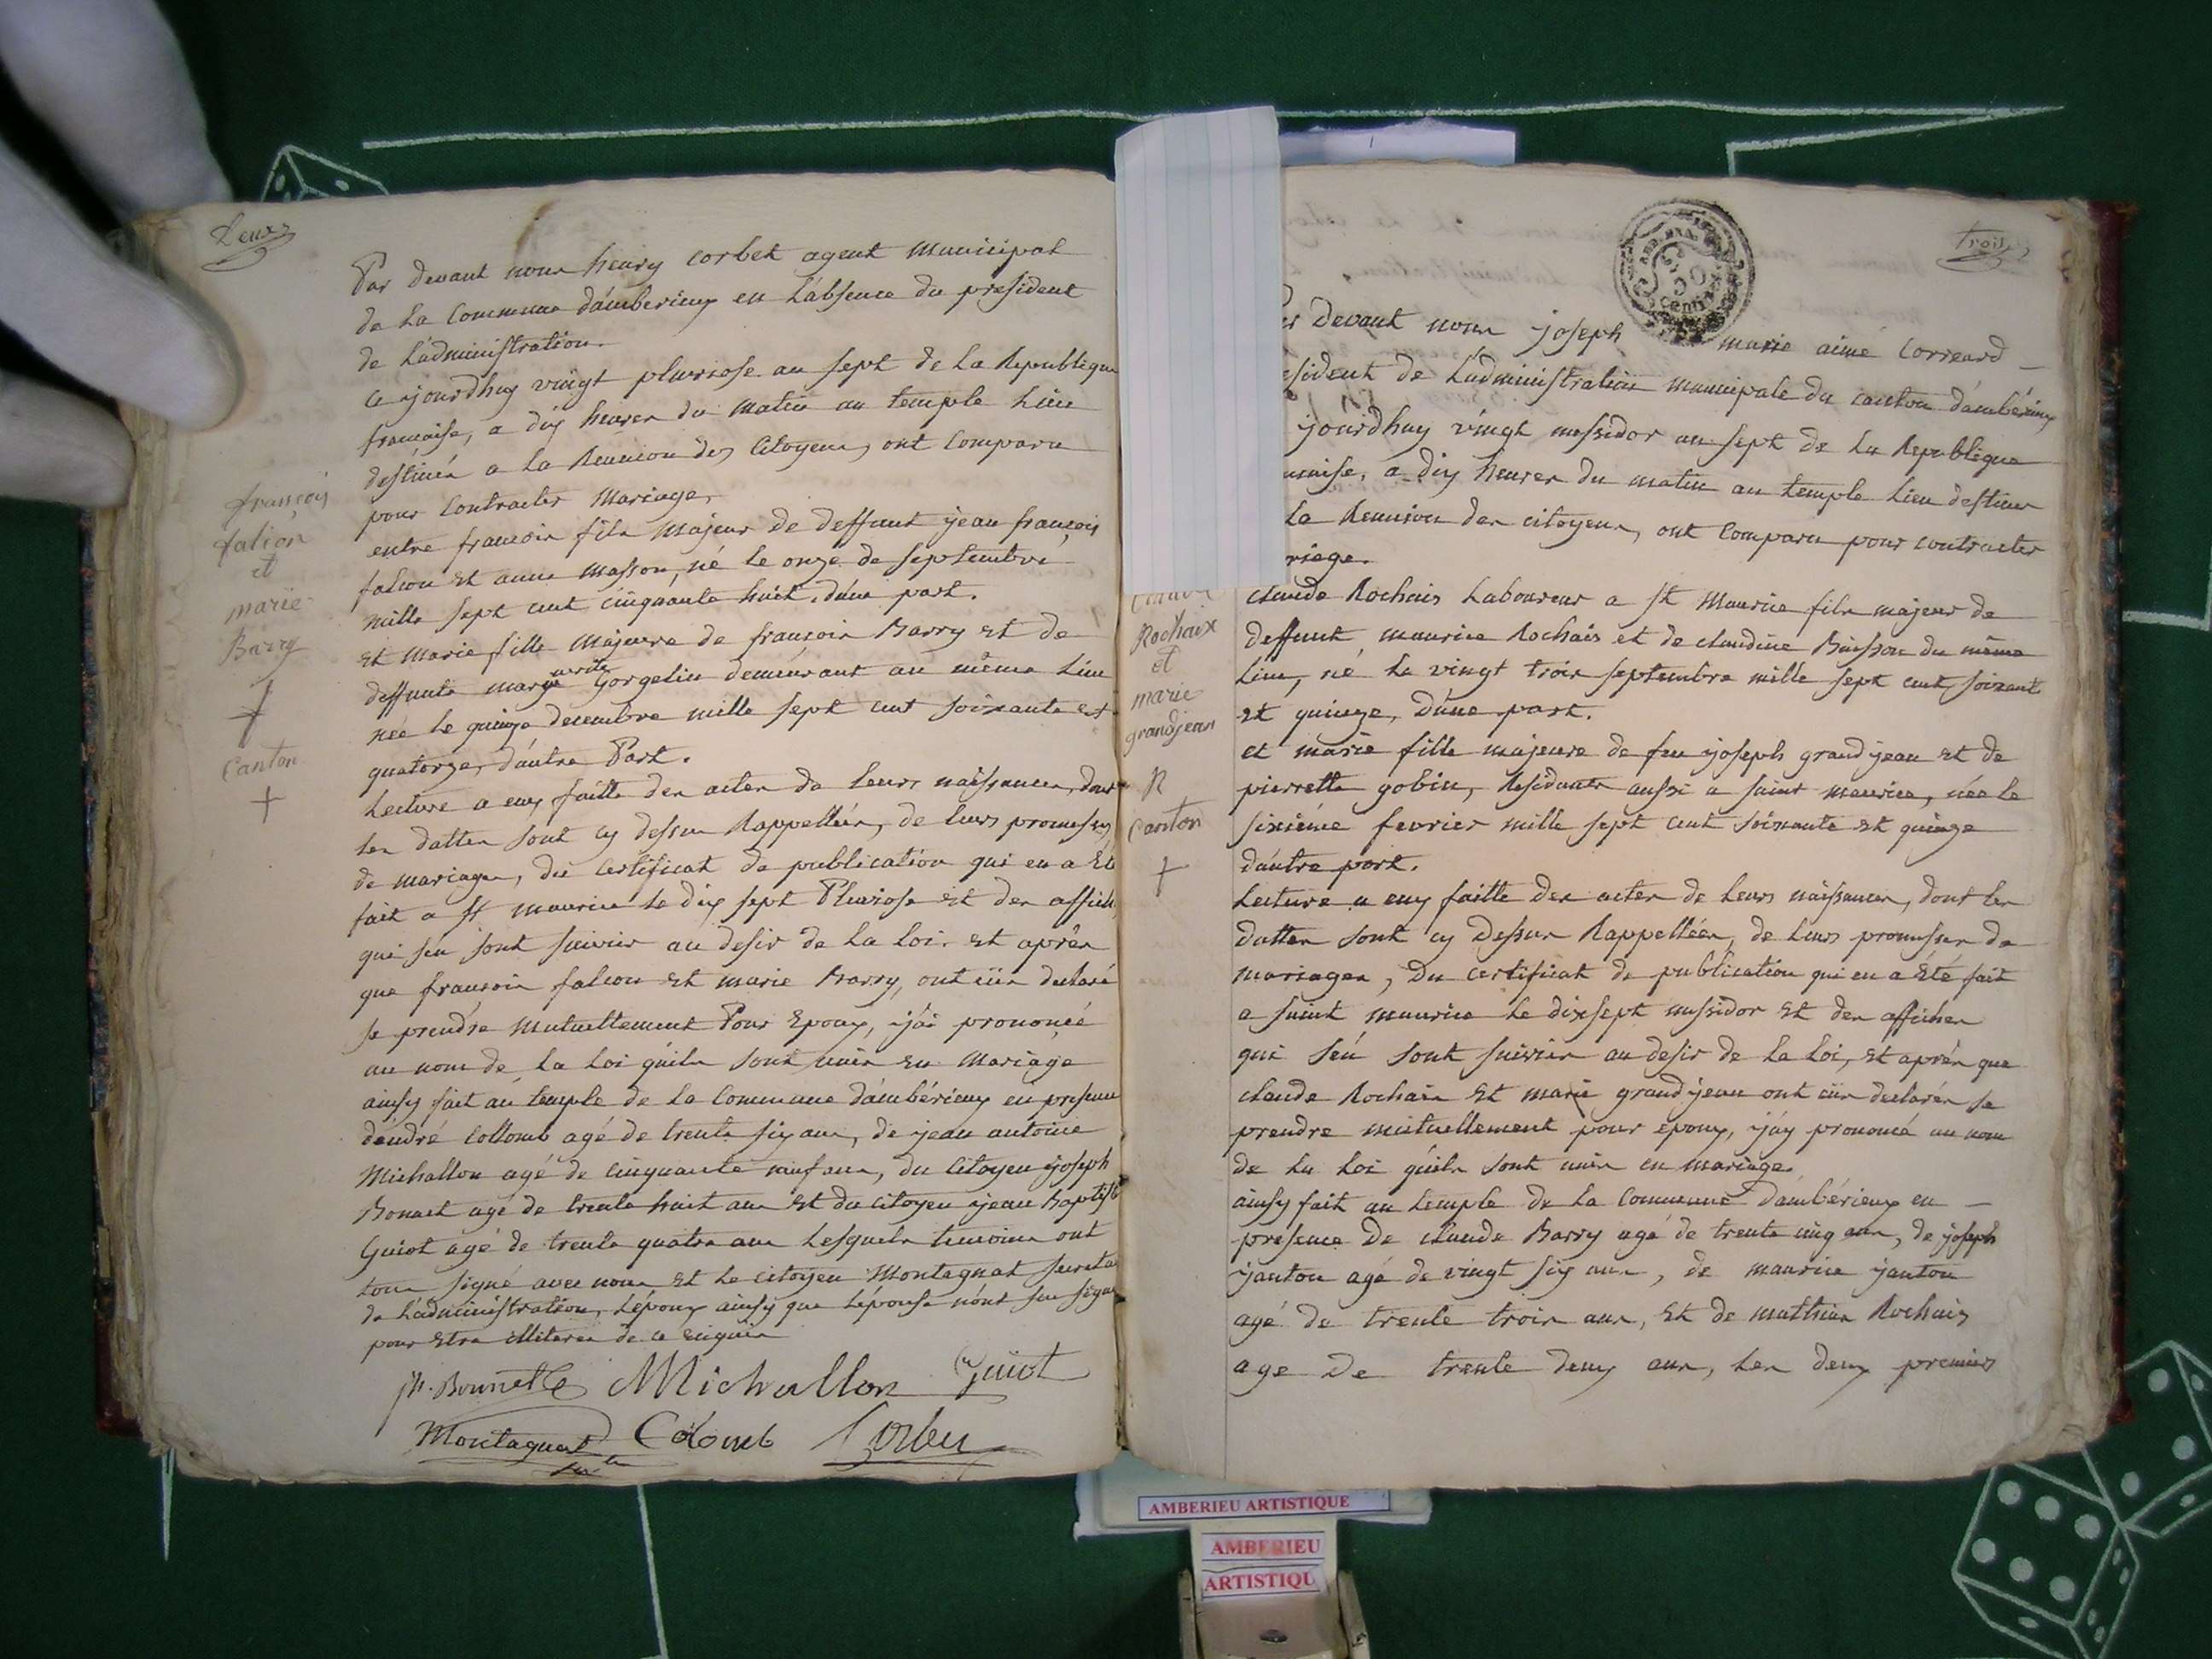 Deux
Par devant nous henry corbet agent Municipal
de La Commune d'ambericux en L'absence du president
de L'administration.
Ce jourdhuy vingt pluviose an sept de La Republique
francaise, a dix heures du Matin au temple Lieu
destinés a La Reunion des Citoyens, ont Comparu
pour Contracter Mariage,
entre francois fils Majeur de deffunt jean françois
falcon et anne Masson, né le onze de septembre
mille sept cent cinquante huit, d'une part.
et Marie fille Majeure de francois Barry et de
deffunte marguerite Gorgelin demeurant au même Lieu
née le quinze decembre mille sept cent soixante et
quatorze, d'autre Part.
Lecture a eux faitte des actes de leurs naissances, dont
les dattes sont cy dessus Rappellées, de leurs promesses
de mariages, du Certificat de publication qui en a été
fait a St maurice le dix sept Pluviose et des affiches
qui s'en sont suivies au desir de La Loi. et après
que francois falcon et marie Barry, ont eus declaré
se prendre mutuellement Pour Epoux, j'ai prononcé
au nom de La Loi qu'ils sont unis en Mariage
ainsy fait au temple de La Commune d'ambérieux en presence
d'andré Collomb agé de trente six ans, de jean antoine
Michallon agé de cinquante neuf ans, du Citoyen joseph
Bonnet agé de trente huit ans et du Citoyen jean Baptiste
Guiot agé de trente quatre ans Lesquels temoins ont
tous signé avec nous et Le citoyen Montagnat secretaire
de L'administration, L'époux ainsy que L'épouse n'ont su signer
pour etre illiterés de ce enquis
Jh. Bonnet Michallon Guiot
Montagnat Colomb Corbet
françois
falcon
et
marie
Barry
Canton
trois
devant nous joseph marie aimé Correard
sident de L'administration municipale du canton d'ambérieux
jourdhuy vingt messidor an sept de La Republique
caise, a dix heures du matin au temple Lieu destiné
La Reunion des citoyens, ont Comparu pour contracter
riage.
Claude Rochais Laboureur a St Maurice fils majeur de
deffunt, maurice Rochais et de claudine Buisson du même
Lieu, né Le vingt trois septembre mille sept cent, soixante
et quinze, d'une part.
et marie fille majeure de feu joseph grandjean et de
pierrette gobin, Residante aussi a saint maurice, née le
sixiéme fevrier mille sept cent soixante et quinze
d'autre part.
Lecture a eux faitte des actes de leurs naissances, dont les
dattes sont cy Dessus Rappellées, de leurs promesses de
mariages, Du Certificat de publication qui en a été fait
a saint maurice le dixsept messidor et des affiches
qui s'en sont suivies au desir de La Loi, et aprés que
claude Rochais et marie grandjean ont eus declarés se
prendre mutuellement pour epoux, j'ay prononcé au nom
de La Loi qu'ils sont unis en mariage.
ainsy fait au temple de La Commune d'ambérieux en
présence De claude Barry agé de trente cinq ans, de joseph
janton agé de vingt six ans, de maurice janton
agé de trente trois ans, et de mathieu Rochais
age de trente deux ans, Les deux premiers
Rochaix
et
marie
grandjean
R
Canton
AMBERIEU ARTISTIQUE
AMBERIEU
ARTISTIQU